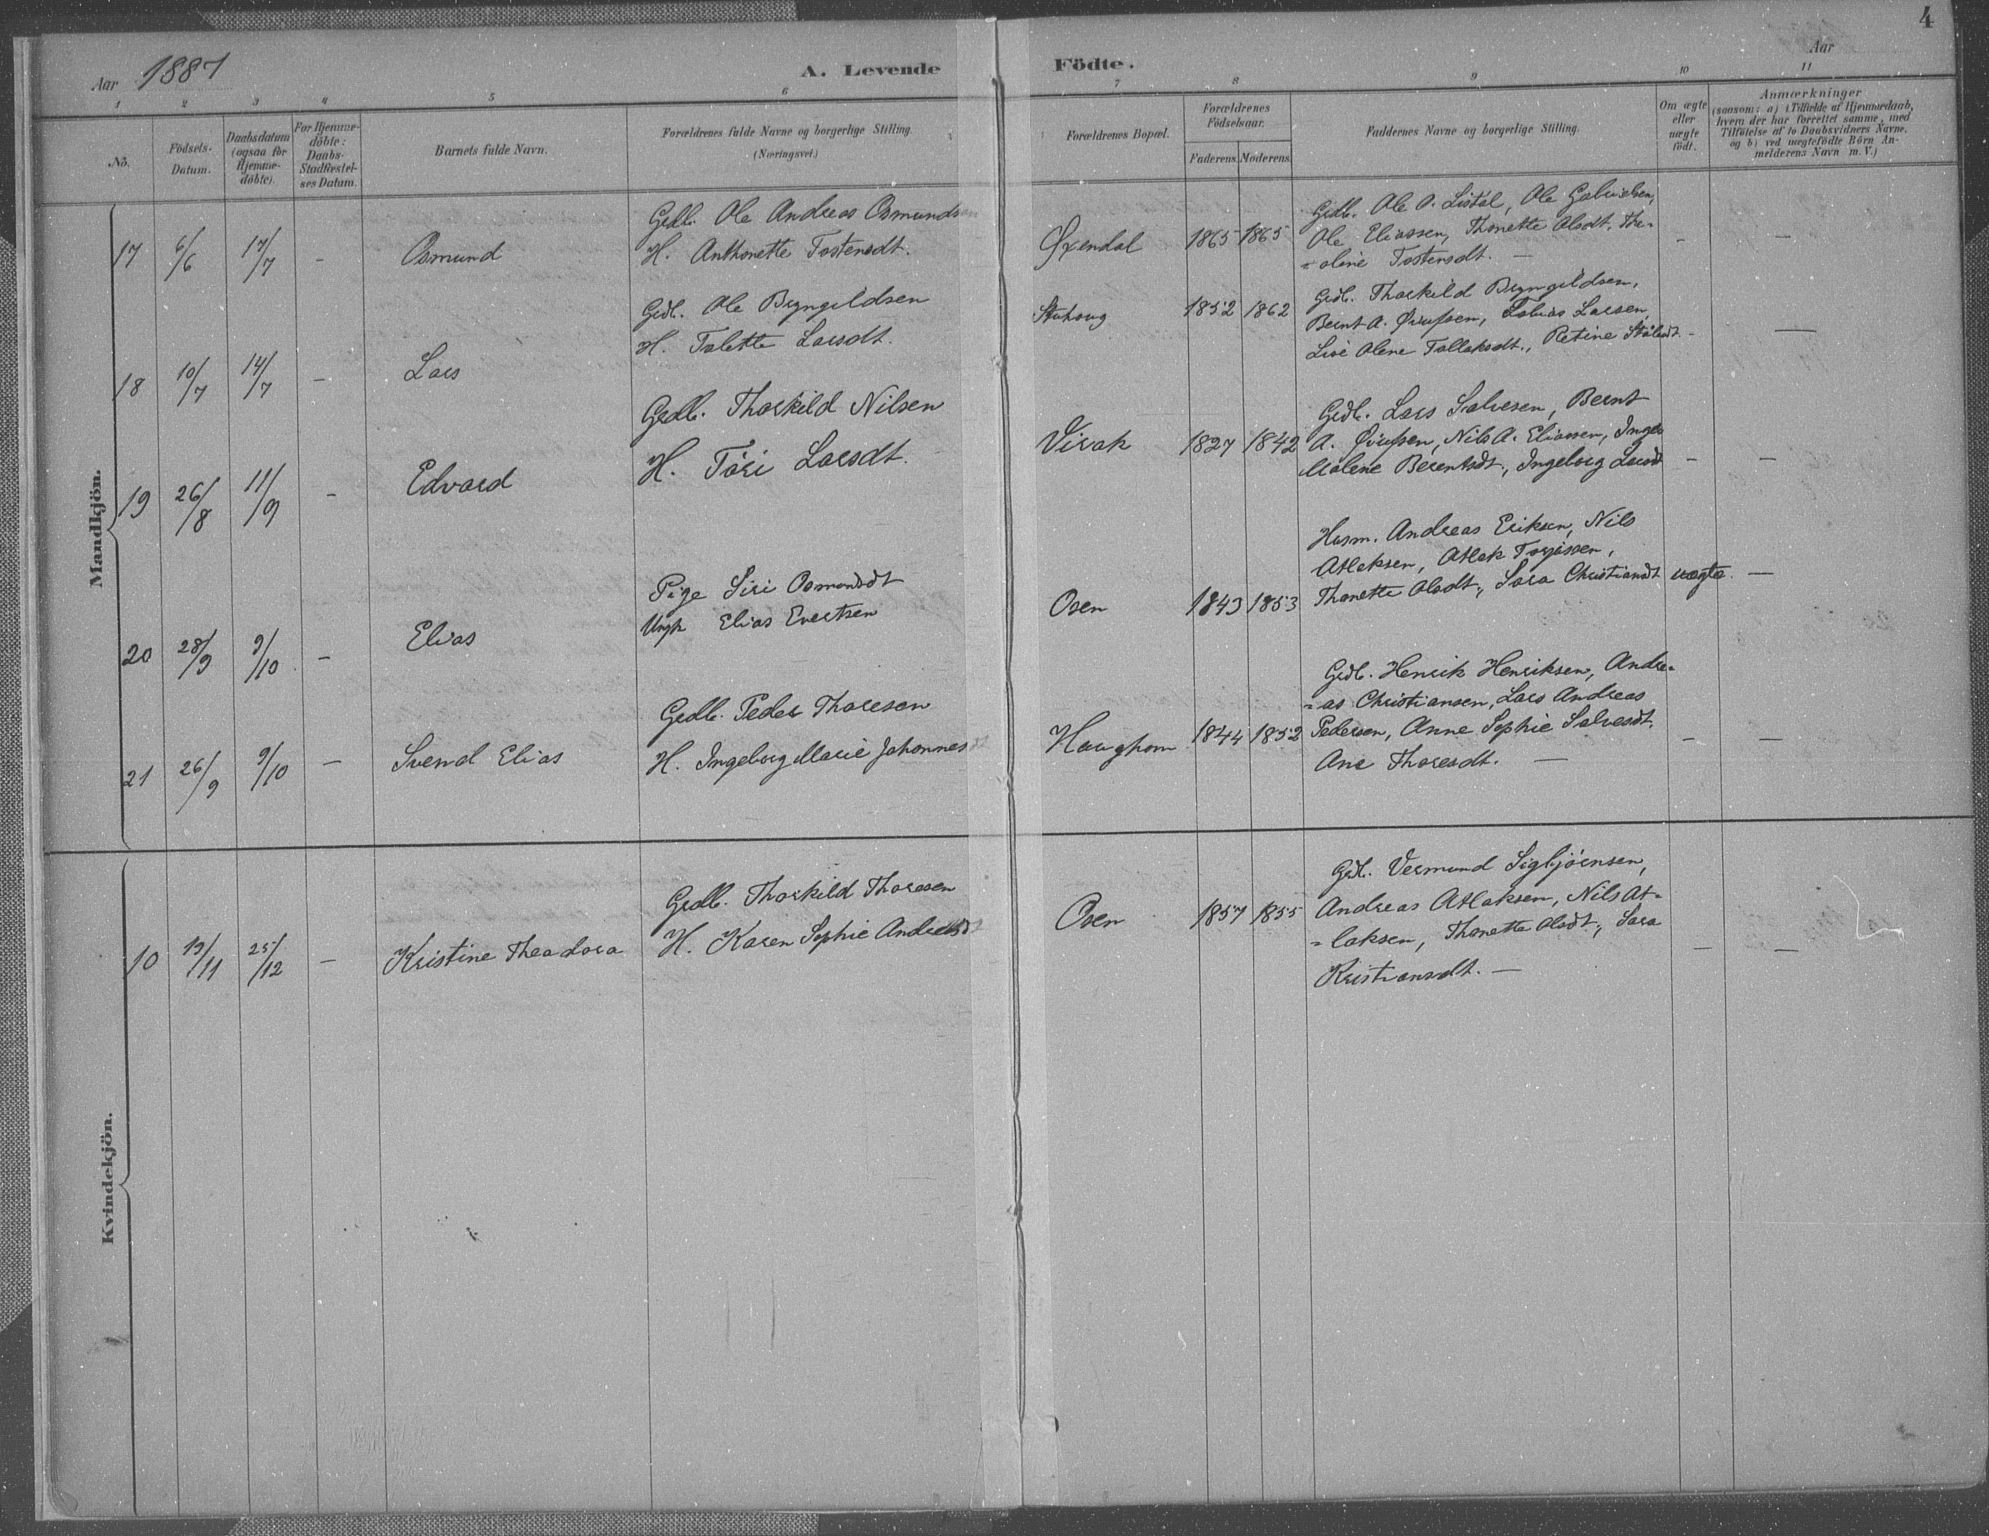 4
Aar 1887
A. Levende Födte.
Aar
1 2 3 4 5 6 7 8 9 10 11
No.
Födsels-
Datum.
Daabsdatum
(ogsaa for
Hjemme-
döbte).
For Hjemme-
döbte:
Daabs-
Stadfæstel-
ses Datum.
Barnets fulde Navn.
Forældrenes fulde Navne og borgerlige Stilling.
(Næringsvei.)
Forældrenes Bopæl.
Forældrenes
Födselsaar.
Faderens. Moderens.
Faddernes Navne og borgerlige Stilling.
Om ægte
eller
uægte
födt.
Anmærkninger
(saasom: a) i Tilfælde af Hjemmedaab,
hvem der har forrettet samme, med
Tilföielse af to Daabsvidners Navne,
og b) ved uægtefödte Börn An-
melderens Navn m. V.)
Mandkjön.
17 6/6 17/7 - Osmund
Grdb. Ole Andreas Osmundsen
H. Anthonette Tostensdt.
Øxendal 1865 1865
Grdb. Ole O. Listöl, Ole Gabrielsen,
Ole Eliassen, Thonette Olsdt. The-
-oline Tostensdt. — - -
18 10/7 14/7 - Lars
Grdb. Ole Bryngildsen
H. Talette Larsdt.
Stuhoug 1852 1862
Grdb. Thorkild Bryngildsen,
Bernt A. Øvensen, Tobias Larsen,
Lise Olene Tollaksdt., Petine Stölsdt. - —
19 26/8 11/9 - Edvard
Grdb. Thorkild Nilsen
H. Töri Larsdt.
Virak 1827 1842
Grdb. Lars Salvesen, Bernt
A. Øvensen, Nils A. Eliassen, Inger
Malene Berentsdt., Ingeborg Larsdt - -
20 28/9 9/10 - Elias
Pige Siri Osmundsdt
Ungk Elias Evertsen
Osen 1843 1853
Husm. Andreas Eriksen, Nils
Atlaksen, Atlak Tryjssen,
Thonette Olsdt., Sara Christiansdt uægte. —
21 26/9 9/10 - Svend Elias
Grdb. Peder Thoresen
H. Ingeborg Marie Johannesdt
Haughom 1844 1852
Grdb. Henrik Henriksen, Andre-
-as Christiansen, Lars Andreas
Pedersen, Anne Sophie Salvesdt.
Ane Thoresdt. — - -
Kvindekjön.
10 19/11 25/12 - Kristine Theodora
Grdb. Thorkild Thoresen
H. Karen Sophie Andreasdt
Osen 1857 1855
Grdb. Vermund Sigbjörnsen,
Andreas Atlaksen, Nils At-
-laksen, Thonette Olsdt., Sara
Kristiansdt. — - -